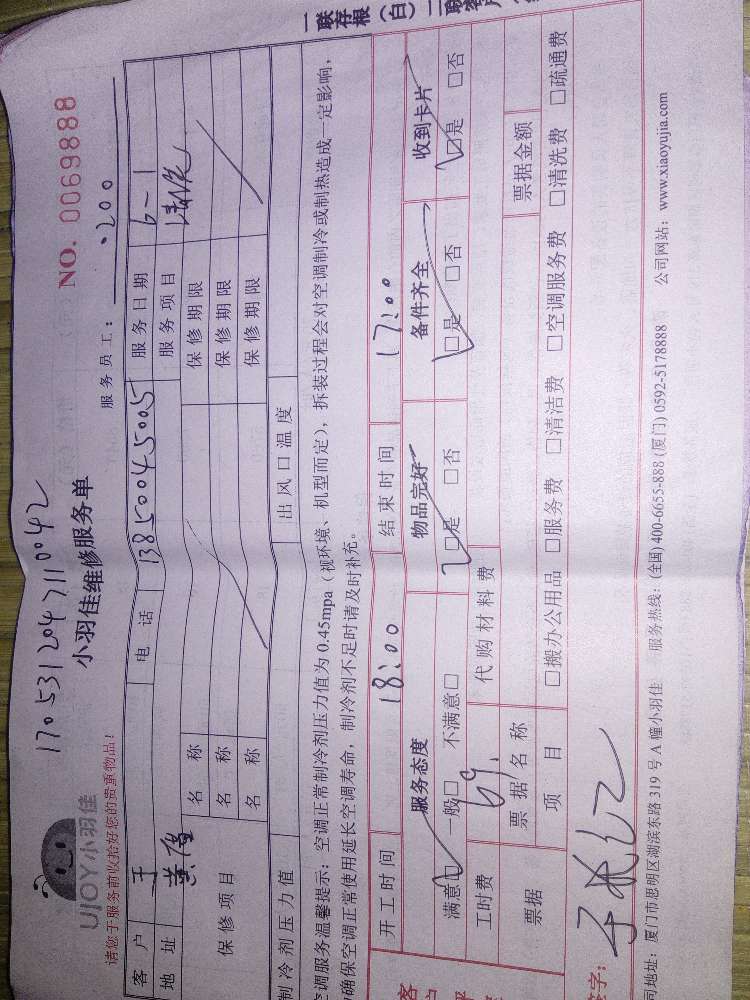 一联存根(白)二联客户
17053120471104２
NO. 0069888
UJOY小羽佳
小羽佳维修服务单
请您于服务前收拾好您的贵重物品!
服务员工: 200
客户 于 电话 13850045005 服务日期 6-1
地址 服务项目 清洗
保修项目 名称 保修期限
名称 保修期限
名称 保修期限
制冷剂压力值 出风口温度
空调服务温馨提示:空调正常制冷剂压力值为0.45mpa(视环境、机型而定),拆装过程会对空调制冷或制热造成一定影响,
确保空调正常使用延长空调寿命,制冷剂不足时请及时补充。
开工时间 18:00 结束时间 17:00
服务态度 物品完好 备件齐全 收到卡片
满意□ 一般□ 不满意□ □是 □否 □是 □否 □是 □否
工时费 69. 代购材料费
票据 票据名称 票据金额
项目 □搬办公用品 □服务费 □清洁费 □空调服务费 □清洗费 □疏通费
签字:
司地址:厦门市思明区湖滨东路319号A幢小羽佳 服务热线:(全国)400-6655-888(厦门)0592-5178888 公司网站:www.xiaoyujia.com